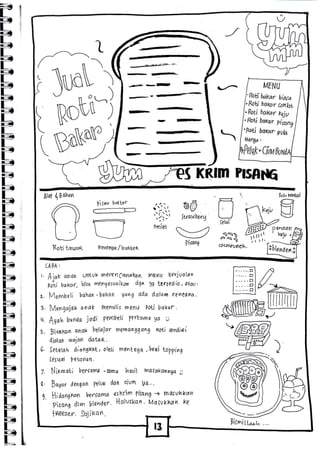 Jual
Roti
Bakar
yum
yum
MENU
• Roti bakar biasa
• Roti bakar coklat
• Roti bakar keju
• Roti bakar pisang
• Roti bakar gula
Harga =
Peluk + Cium Bunda
yum
es KRIM PISANG
Alat & Bahan
Roti tawar
pisau butter
mentega / butter
meises
strawberry
pisang
selai
keju
Susu kental
parutan keju
blender
CARA :
1. Ajak anak untuk merencanakan menu berjualan
roti bakar, bisa menyesuaikan dgn yg tersedia, atau :
2. Membeli bahan-bahan yang ada dalam rencana.
3. Mengajak anak menulis menu roti bakar.
4. Ayah bunda jadi pembeli pertama ya
5. Biarkan anak belajar memanggang roti sendiri
diatas wajan datar..
6. Setelah diangkat, olesi mentega, beri topping
sesuai pesanan.
7. Nikmati bersama-sama hasil masakannya
8. Bayar dengan peluk dan cium ya...
9. Hidangkan bersama eskrim pisang → masukkan
Pisang dlm blender. Haluskan. Masukkan ke
freezer. Sajikan.
13
Bismillaah ...